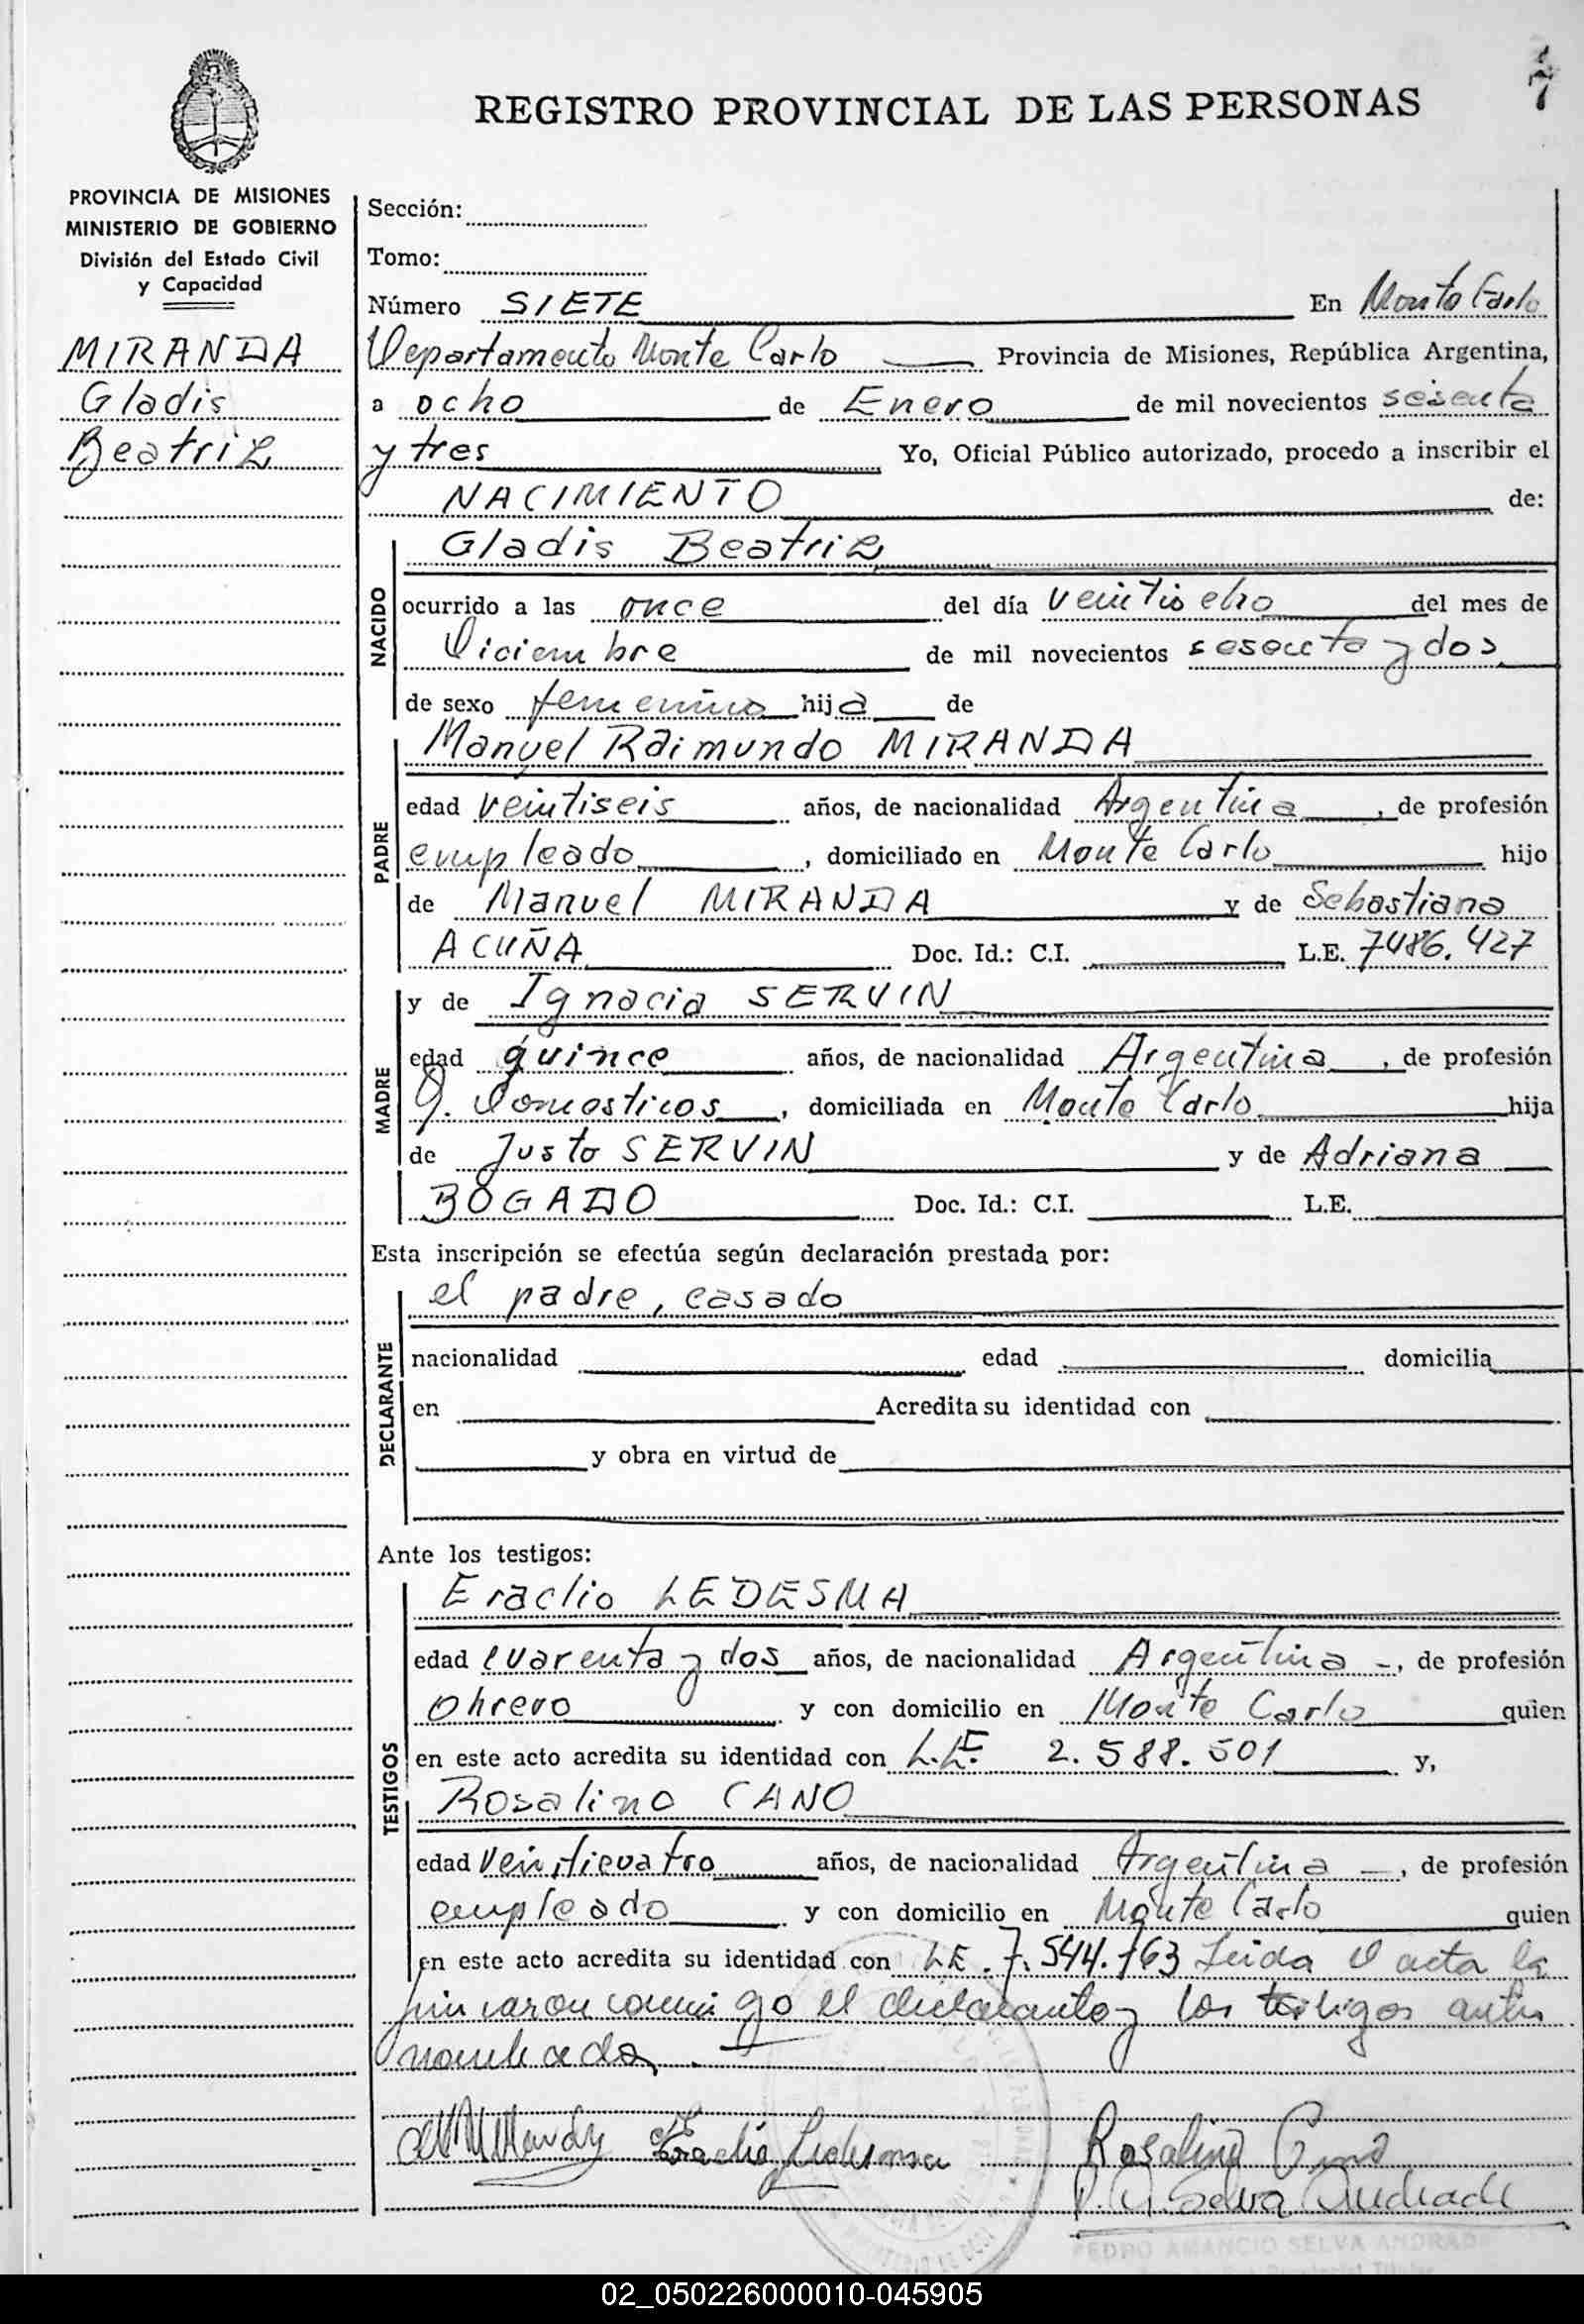 7
REGISTRO PROVINCIAL DE LAS PERSONAS
PROVINCIA DE MISIONES
MINISTERIO DE GOBIERNO
División del Estado Civil
y Capacidad
MIRANDA
Gladis
Beatriz
Sección:
Tomo:
Número SIETE En Monte Carlo
Departamento Monte Carlo Provincia de Misiones, República Argentina,
a ocho de Enero de mil novecientos sesenta
y tres Yo, Oficial Público autorizado, procedo a inscribir el
NACIMIENTO de:
NACIDO
Gladis Beatriz
ocurrido a las once del día veintiocho del mes de
Diciembre de mil novecientos sesenta y dos
de sexo femenino hija de
PADRE
Manuel Raimundo MIRANDA
edad veintiseis años, de nacionalidad Argentina, de profesión
empleado, domiciliado en Monte Carlo hijo
de Manuel MIRANDA y de Sebastiana
ACUÑA Doc. Id.: C.I. L.E. 7486.427
MADRE
y de Ignacia SERVIN
edad quince años, de nacionalidad Argentina, de profesión
Q. Domesticos, domiciliada en Monte Carlo hija
de Justo SERVIN y de Adriana
BOGADO Doc. Id.: C.I. L.E.
Esta inscripción se efectúa según declaración prestada por:
DECLARANTE
el padre, casado
nacionalidad edad domicilia
en Acredita su identidad con
y obra en virtud de
Ante los testigos:
TESTIGOS
Eraclio LEDESMA
edad cuarenta y dos años, de nacionalidad Argentina -, de profesión
obrero y con domicilio en Monte Carlo quien
en este acto acredita su identidad con L.E. 2.588.501 y,
Rosalino CANO
edad veinticuatro años, de nacionalidad Argentina -, de profesión
empleado y con domicilio en Monte Carlo quien
en este acto acredita su identidad con L.E. 7.544.163 Leida el acta la
firmaron conmigo el declarante y los testigos antes
nombrados.
Eraclio Ledesma Rosalino Cano
P. A. Selva Andrade
PEDRO AMANCIO SELVA ANDRADE
02_050226000010-045905